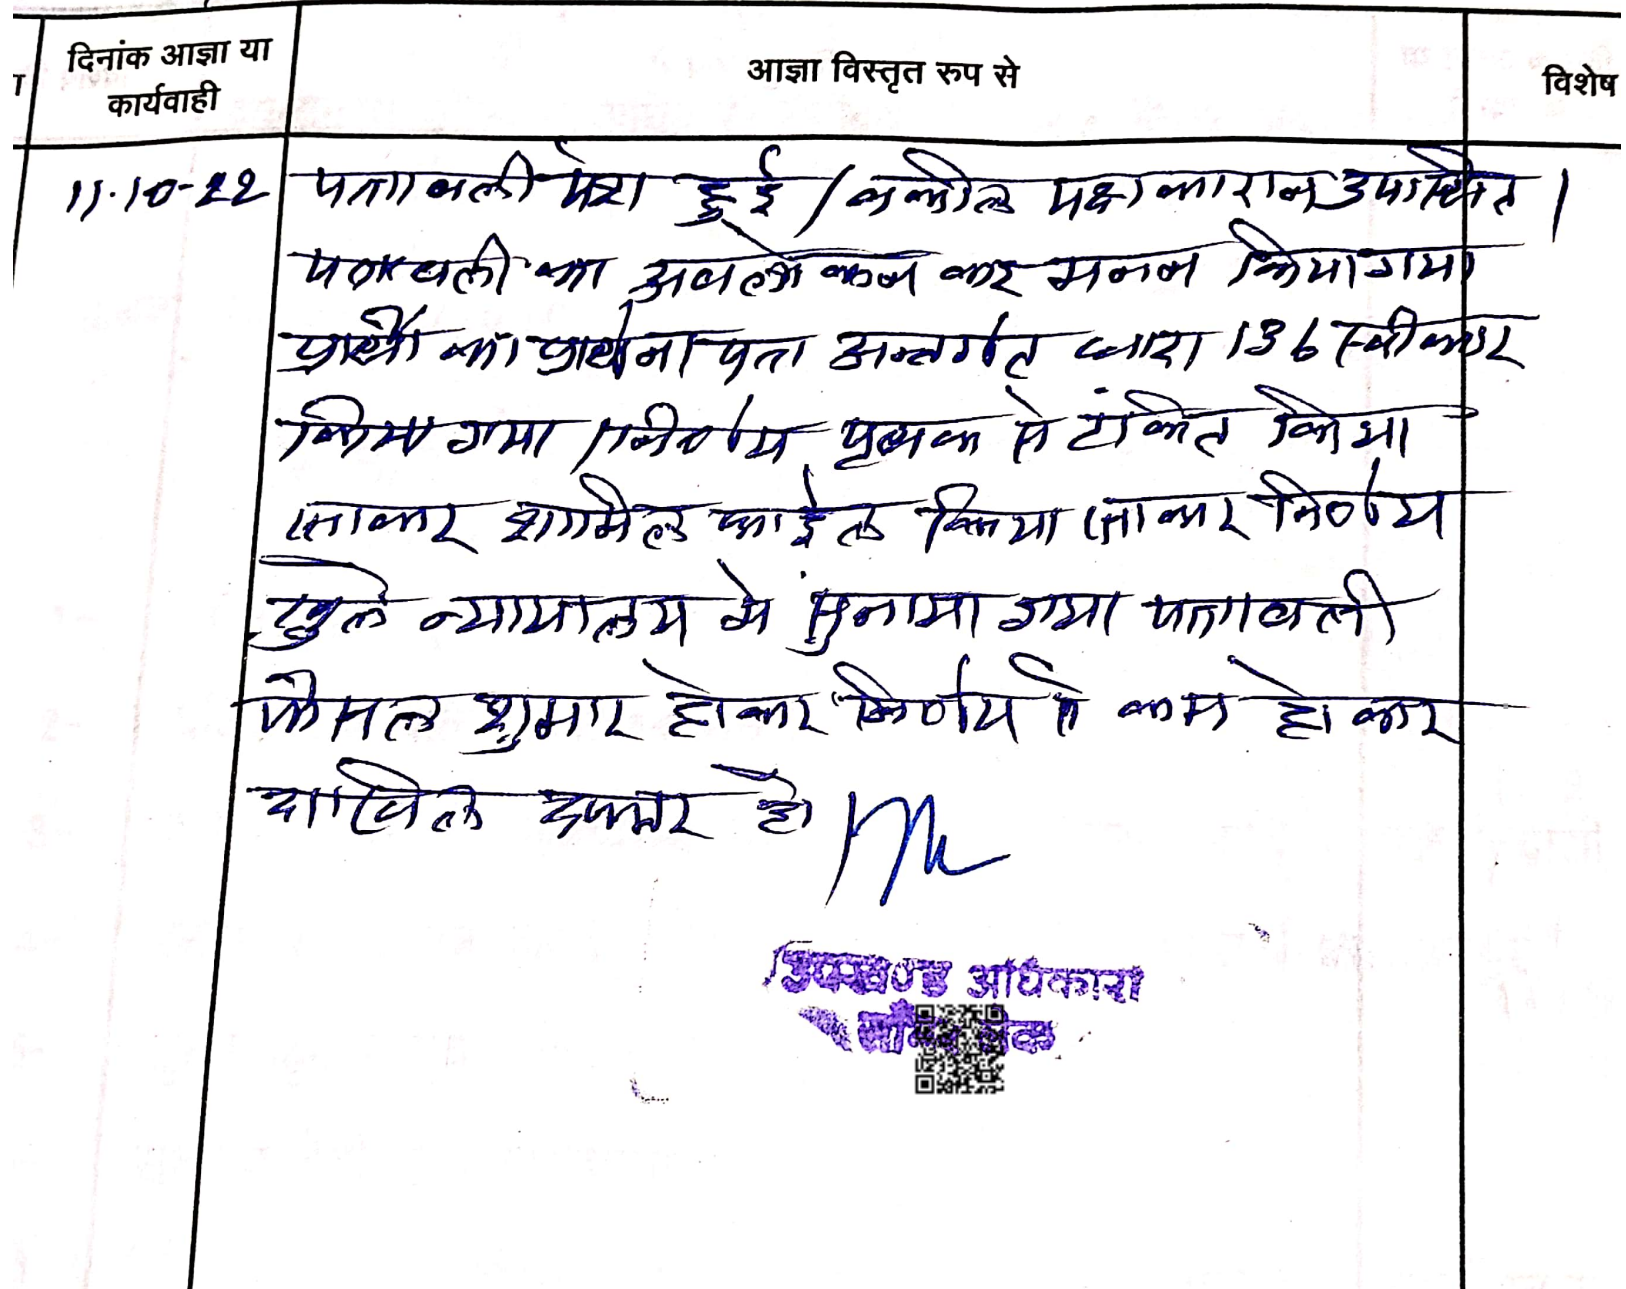 दिनांक आज्ञा या
कार्यवाही
आज्ञा विस्तृत रुप से
विशेष
11.10-22 पत्रावली पेश हुई / वकील पक्षकारान उपस्थित |
पत्रावली का अवलोकन कर मनन किया गया
प्रार्थी का प्रार्थना पत्र अन्तर्गत धारा 136 स्वीकार
किया गया / निर्णय पृथक से टांकित किया
जाकर शामिल फाईल किया जाकर निर्णय
खुले न्यायालय में सुनाया गया पत्रावली
फैसल शुमार होकर निर्णय से कम होकर
दाखिल दफ्तर हो
उपखण्ड अधिकारी